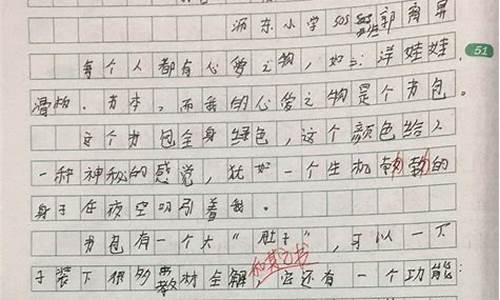 东小学505班郭
51
每个人都有心爱之物,如:洋娃娃,
滑板、书本,而我的心爱之物是个书包。
这个书包全身绿色,这个颜色给人
一种神秘的感觉,犹如一个生机勃勃的
身于在夜空吸引着我。
书包有一个大“肚子”,可以一下
子装下很多教材全解和其它书它还有一个功能